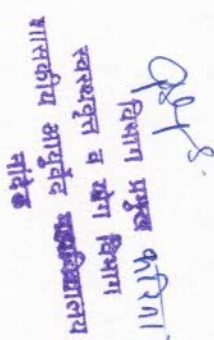 विभाग प्रमुख करिता
स्वस्थवृत्त व योग विभाग
शासकीय आयुर्वेद महाविद्यालय
नांदेड